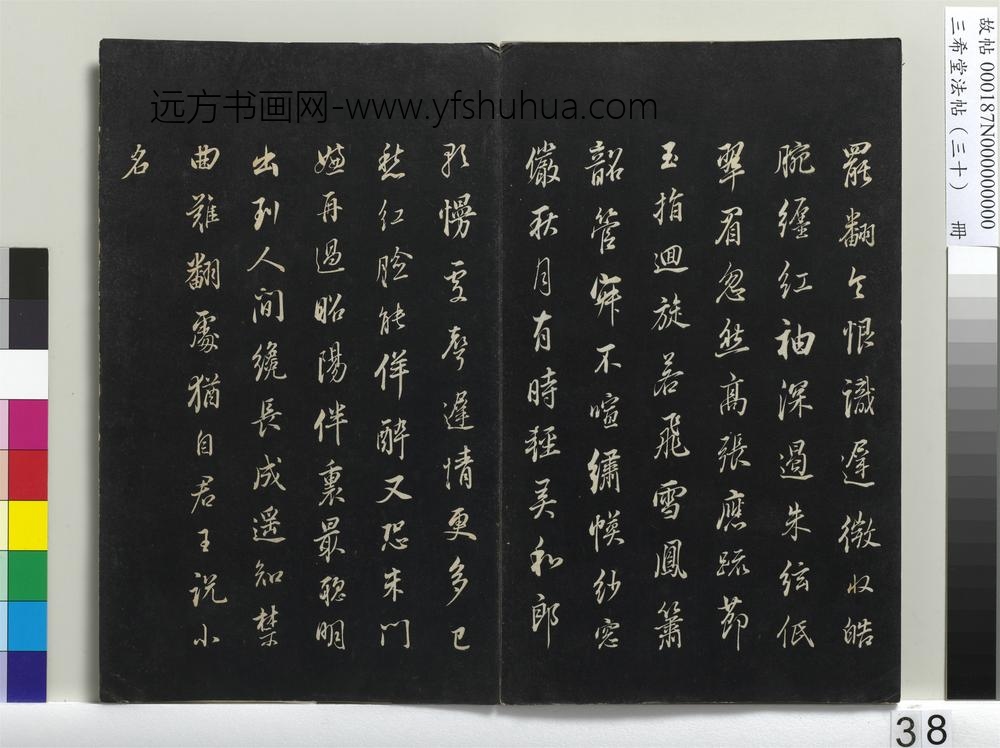 罷翻令恨識遲微收皓
腕纏紅袖深遏朱絃低
翠眉忽然高張應疏節
玉指迴旋若飛雪鳳簫
韶管寂不喧繡幙紗窓
儼秋月有時輕美和郎
歌慢處聲遲情更多已
愁紅臉能佯醉又恐朱門
嫌再過昭陽伴裏最聰明
出到人間纔長成遥知禁
曲難翻處猶自君王說小
名
远方书画网-www.yfshuhua.com
故帖 000187N000000000
三希堂法帖（三十） 冊
38